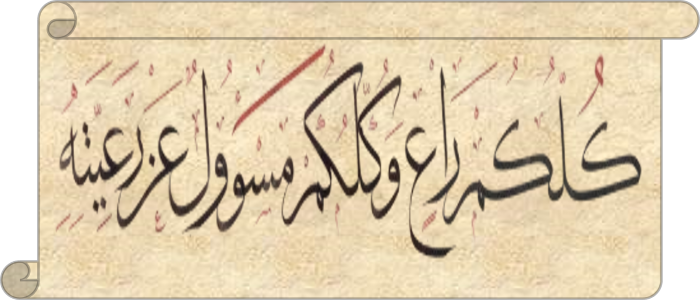 كلكم راع وكلكم مسوول عن رعيته